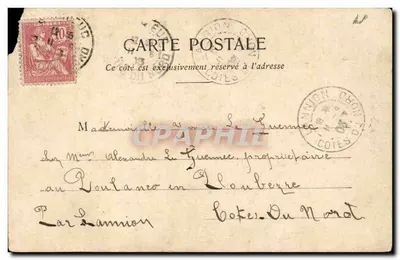 CARTE POSTALE
Ce côté est exclusivement réservé à l'adresse
CPAPHIL
Mademoiselle Le Guennec
chez Mme Alexandre Le Guennec, propriétaire
au Poulanco en Loubezre
Par Lannion Cotes-Du Nord
LANNION
COTES D
10